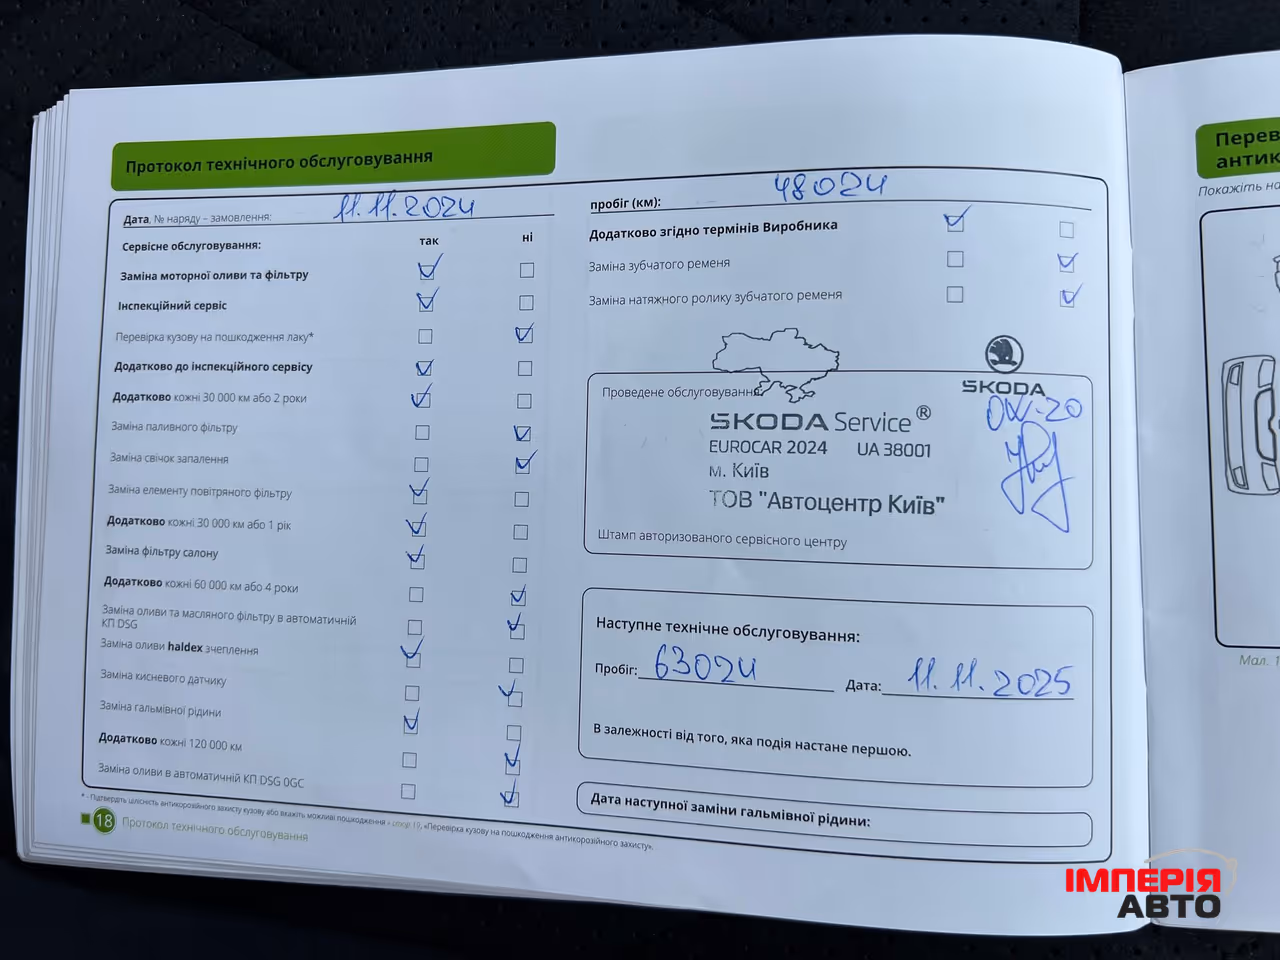 Протокол технічного обслуговування
Дата, № наряду – замовлення: 11.11.2024
Сервісне обслуговування: так ні
Заміна моторної оливи та фільтру
Інспекційний сервіс
Перевірка кузову на пошкодження лаку*
Додатково до інспекційного сервісу
Додатково кожні 30 000 км або 2 роки
Заміна паливного фільтру
Заміна свічок запалення
Заміна елементу повітряного фільтру
Додатково кожні 30 000 км або 1 рік
Заміна фільтру салону
Додатково кожні 60 000 км або 4 роки
Заміна оливи та масляного фільтру в автоматичній
КП DSG
Заміна оливи haldex зчеплення
Заміна кисневого датчику
Заміна гальмівної рідини
Додатково кожні 120 000 км
Заміна оливи в автоматичній КП DSG 0GC
* - Підтвердіть цілісність антикорозійного захисту кузову або вкажіть можливі пошкодження - стор 19, «Перевірка кузову на пошкодження антикорозійного захисту».
18 Протокол технічного обслуговування
пробіг (км): 48024
Додатково згідно термінів Виробника
Заміна зубчатого ременя
Заміна натяжного ролику зубчатого ременя
SKODA
Проведене обслуговування
0W-20
SKODA Service®
EUROCAR 2024 UA 38001
м. Київ
ТОВ "Автоцентр Київ"
Штамп авторизованого сервісного центру
Наступне технічне обслуговування:
Пробіг: 63024 Дата: 11.11.2025
В залежності від того, яка подія настане першою.
Дата наступної заміни гальмівної рідини:
Перев
антик
Покажіть на
Мал. 1
ІМПЕРІЯ
АВТО